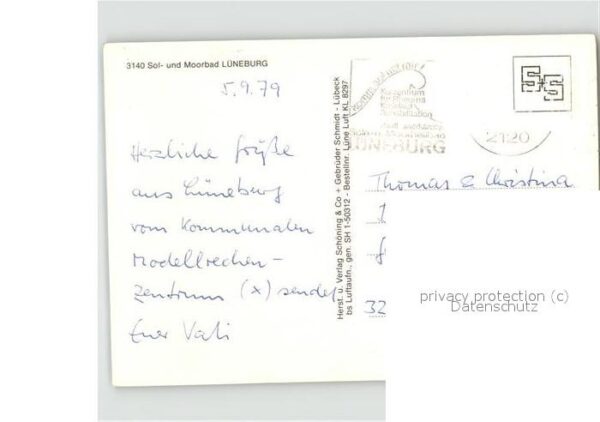 3140 Sol- und Moorbad LÜNEBURG
5.9.79
Herzliche Grüße
aus Lüneburg
vom Kommunalen
Modellrechen-
Zentrum (x) sendet
Euer Vati
Herst. u. Verlag Schöning & Co + Gebrüder Schmidt - Lübeck
bs Luftaufn., gen. SH 1-50312 - Bestellnr. Lüne Luft KL 8297
LÜNEBURG
2120
S+S
Thomas & Christina
32
privacy protection (c)
Datenschutz